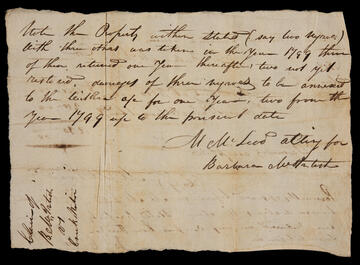 Note the Property within stated (say two negroes)
with three others was taken in the Year 1799 three
of them returned one Year thereafter, two not yet
restored, damages of three negroes to be answered
to the within
for one Year, two from the
Year 1799 up to the present date
M McLeod atty for
Barbara McIntosh
Claim of
vs